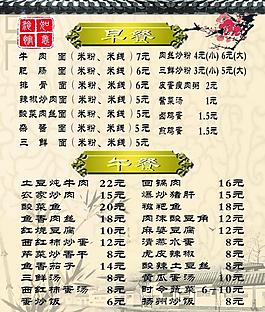 如意
早餐
牛肉面（米粉、米线）7元 肉丝炒粉4元(小) 6元(大)
肥肠面（米粉、米线）6元 三鲜炒粉3元(小) 5元(大)
排骨面（米粉、米线）7元 皮蛋瘦肉粥 2元
辣椒炒肉面（米粉、米线）6元 紫菜汤 1元
酸菜肉丝面（米粉、米线）5元 卤鸡蛋 1.5元
杂酱面（米粉、米线）5元 煎鸡蛋 1.5元
三鲜面（米粉、米线）5元
午餐
土豆炖牛肉 22元 回锅肉 16元
农家炒肉 15元 爆炒猪肝 15元
酸菜鱼 20元 粑粑鱼 18元
鱼香肉丝 18元 肉沫酸豆角 12元
红烧豆腐 10元 麻婆豆腐 12元
西红柿炒蛋 12元 清蒸水蛋 8元
芹菜炒香干 8元 虎皮辣椒 8元
鱼香茄子 14元 酸辣土豆丝 8元
三鲜汤 8元 黄瓜蛋汤 10元
西红柿蛋汤 8元 时令蔬菜 6-10元
蛋炒饭 6元 扬州炒饭 8元